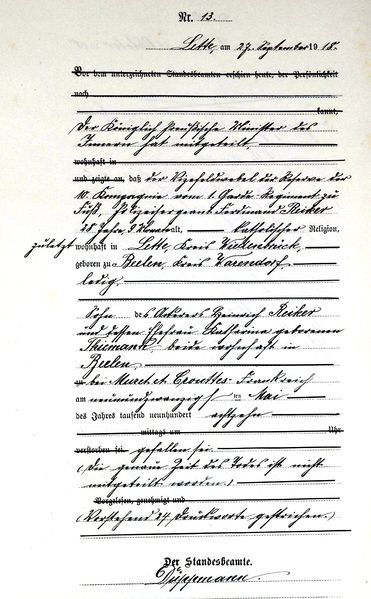 Nr. 13.
Lette, am 27. September 1918.
Vor dem unterzeichneten Standesbeamten erschien heute, der Persönlichkeit
nach
kannt,
Der Königlich Preußische Minister des
Innern hat mitgeteilt
wohnhaft in
und zeigte an, daß der Vizefeldwebel der Reserve der
10. Kompagnie vom 1. Garde Regiment zu
Fuß, Ferdinand Reiker
28 Jahre, 9 Monat alt, katholischer Religion,
zuletzt wohnhaft in Lette, Kreis Wiedenbrück,
geboren zu Beelen, Kreis Warendorf
ledig,
Sohn des Ackerers Heinrich Reiker
und dessen Ehefrau Katharina geborenen
Thiemann beide wohnhaft in
Beelen
zu bei Muret et Crouttes Frankreich
am neunundzwanzigsten Mai
des Jahres tausend neunhundert achtzehn
mittags um Uhr
verstorben sei. gefallen sei.
(Die genaue Zeit des Todes ist nicht
mitgeteilt worden.)
Vorgelesen, genehmigt und
(Vorstehend 24 Druckworte gestrichen.)
Der Standesbeamte.